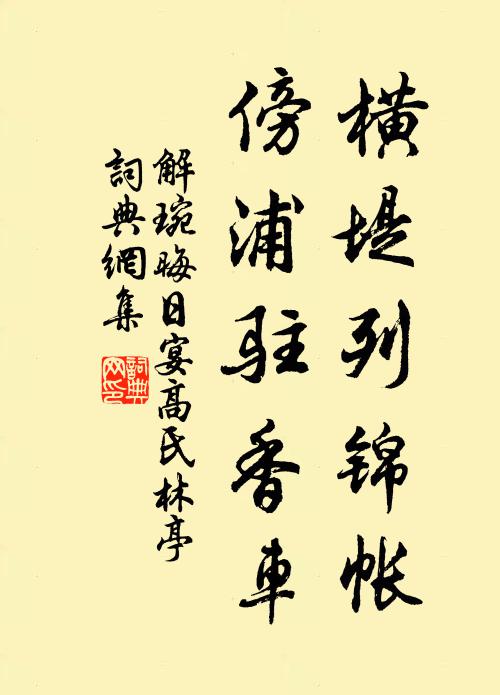 橫堤列錦帳
傍浦駐香車
解琬晦日宴高氏林亭
詞典網集
詞典
网印